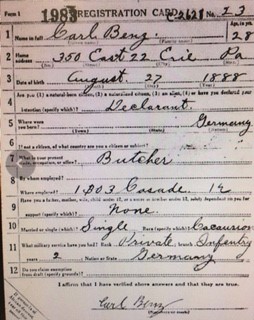 Form 1 1983 REGISTRATION CARD 2621 No. 23
1 Name in full Carl Benz Age, in yrs. 28
2 Home address 350 East 22 Erie Pa
3 Date of birth August 27 1888
4 Are you (1) a natural-born citizen, (2) a naturalized citizen, (3) an alien, (4) or have you declared your intention (specify which)? Declarant
5 Where were you born? Germany
6 If not a citizen, of what country are you a citizen or subject?
7 What is your present trade, occupation, or office? Butcher
8 By whom employed?
Where employed? 1203 Casade
9 Have you a father, mother, wife, child under 12, or a sister or brother under 12, solely dependent on you for support (specify which)? None
10 Married or single (which)? Single Race (specify which)? Cacausion
11 What military service have you had? Rank Private branch Infantry
years 2 Nation or State Germany
12 Do you claim exemption from draft (specify grounds)?
I affirm that I have verified above answers and that they are true.
Carl Benz